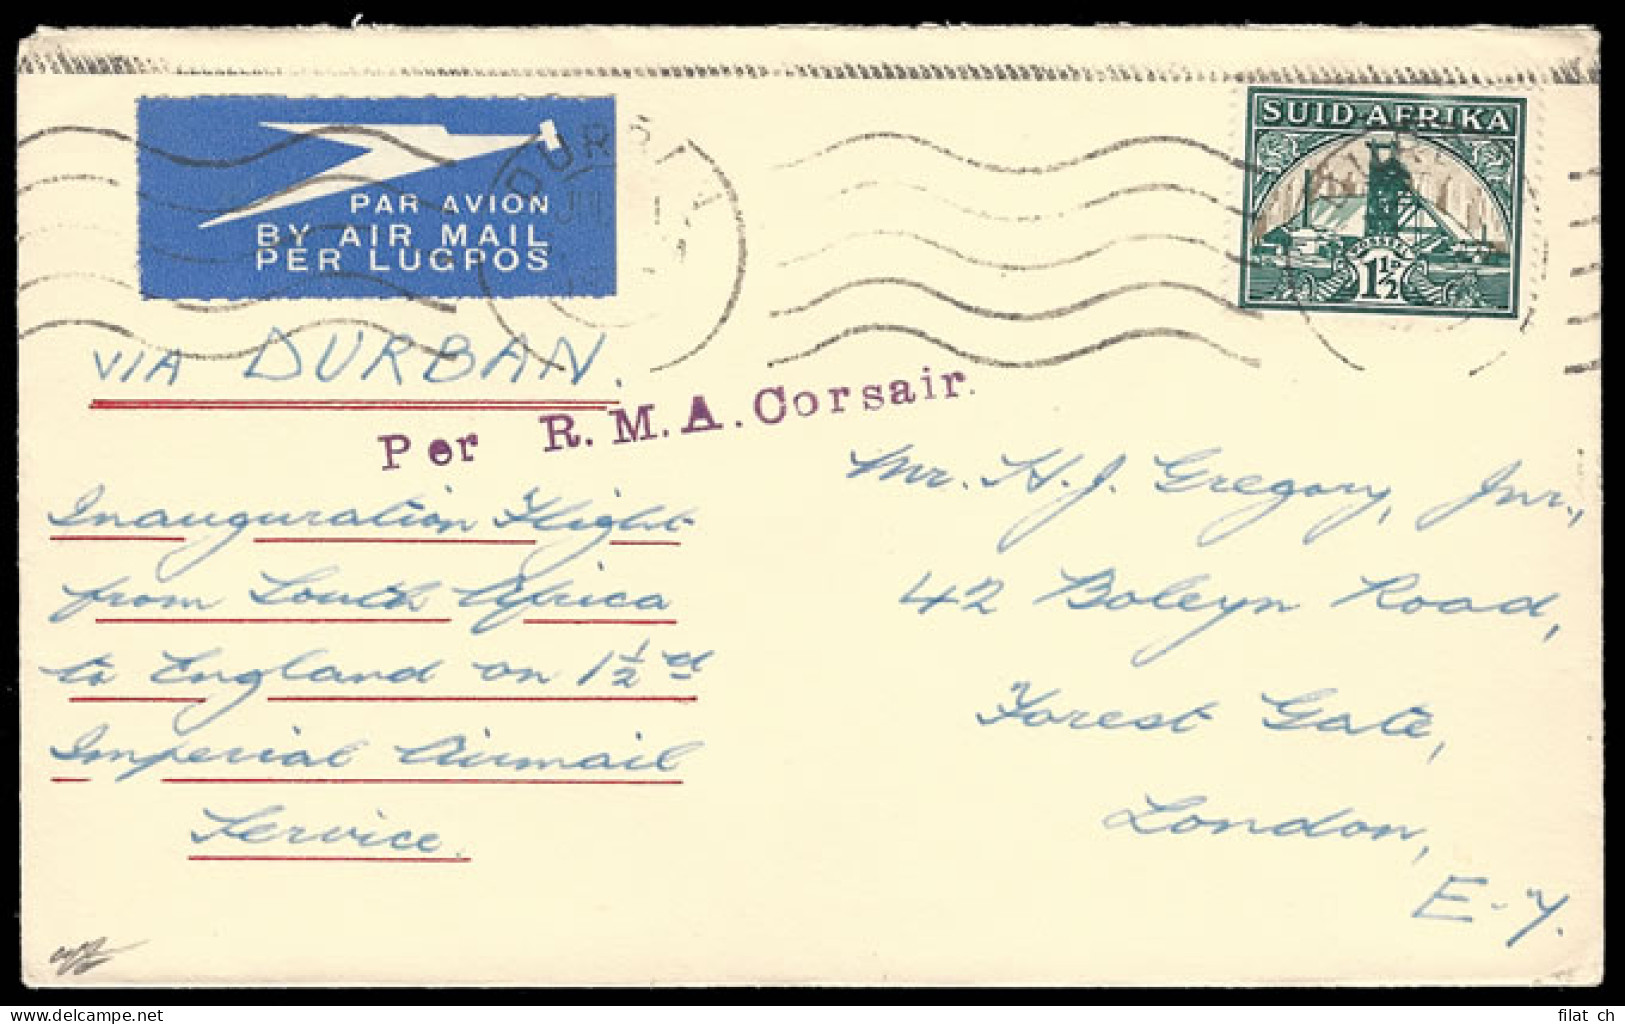 SUID-AFRIKA
POSSEËL
1½D
PAR AVION
BY AIR MAIL
PER LUGPOS
DURBAN
VIA DURBAN.
Per R.M.A. Corsair.
Inauguration Flight
from South Africa
to England on 1½d
Imperial Airmail
Service.
Mr. H. J. Gregory, Jnr.,
42 Boleyn Road,
Forest Gate,
London,
E-7.
filat ch